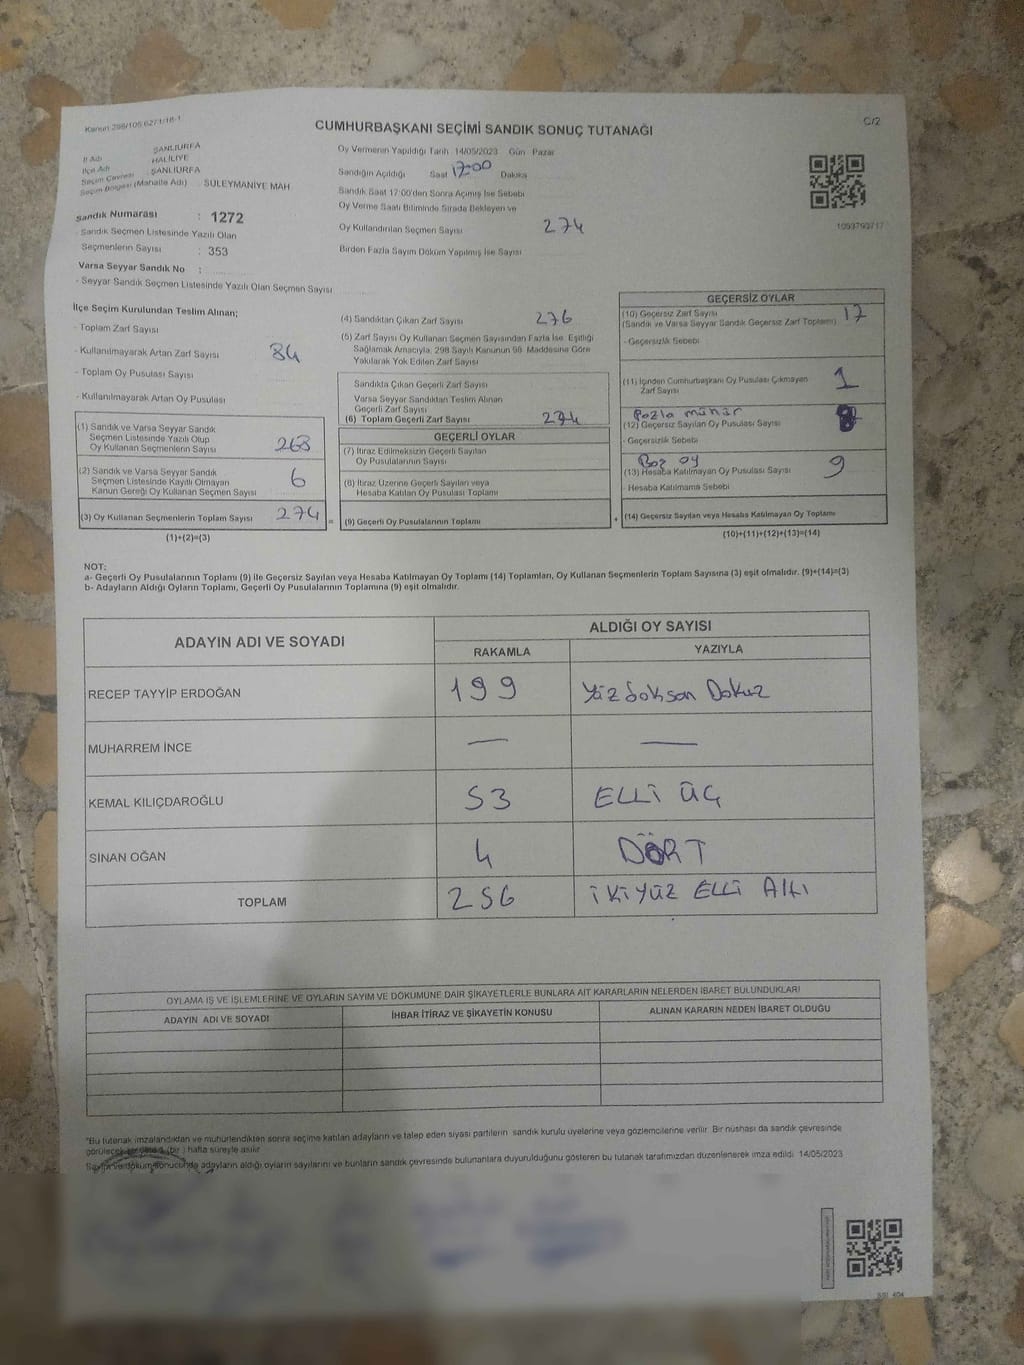 Kanun 298/105 6271/18-1
C/2
CUMHURBAŞKANI SEÇİMİ SANDIK SONUÇ TUTANAĞI
İl Adı ŞANLIURFA
İlçe Adı HALİLİYE
Seçim Çevresi : ŞANLIURFA
Seçim Bölgesi (Mahalle Adı) SÜLEYMANİYE MAH
Sandık Numarası : 1272
- Sandık Seçmen Listesinde Yazılı Olan
Seçmenlerin Sayısı : 353
Varsa Seyyar Sandık No :
- Seyyar Sandık Seçmen Listesinde Yazılı Olan Seçmen Sayısı
Oy Vermenin Yapıldığı Tarih 14/05/2023 Gün Pazar
Sandığın Açıldığı Saat 17:00 Dakika
Sandık Saat 17:00'den Sonra Açımış İse Sebebi
Oy Verme Saati Bitiminde Sırada Bekleyen ve
Oy Kullandırılan Seçmen Sayısı 274
Birden Fazla Sayım Döküm Yapılmış İse Sayısı
1053793717
İlçe Seçim Kurulundan Teslim Alınan;
- Toplam Zarf Sayısı
- Kullanılmayarak Artan Zarf Sayısı 84
- Toplam Oy Pusulası Sayısı
- Kullanılmayarak Artan Oy Pusulası
(1) Sandık ve Varsa Seyyar Sandık
Seçmen Listesinde Yazılı Olup
Oy Kullanan Seçmenlerin Sayısı 268
(2) Sandık ve Varsa Seyyar Sandık
Seçmen Listesinde Kayıtlı Olmayan
Kanun Gereği Oy Kullanan Seçmen Sayısı 6
(3) Oy Kullanan Seçmenlerin Toplam Sayısı 274 =
(1)+(2)=(3)
(4) Sandıktan Çıkan Zarf Sayısı 276
(5) Zarf Sayısı Oy Kullanan Seçmen Sayısından Fazla İse Eşitliği
Sağlamak Amacıyla, 298 Sayılı Kanunun 98. Maddesine Göre
Yakılarak Yok Edilen Zarf Sayısı
Sandıkta Çıkan Geçerli Zarf Sayısı
Varsa Seyyar Sandıktan Teslim Alınan
Geçerli Zarf Sayısı
(6) Toplam Geçerli Zarf Sayısı 274
GEÇERLİ OYLAR
(7) İtiraz Edilmeksizin Geçerli Sayılan
Oy Pusulalarının Sayısı
(8) İtiraz Üzerine Geçerli Sayılan veya
Hesaba Katılan Oy Pusulası Toplamı
(9) Geçerli Oy Pusulalarının Toplamı +
GEÇERSİZ OYLAR
(10) Geçersiz Zarf Sayısı 17
(Sandık ve Varsa Seyyar Sandık Geçersiz Zarf Toplamı)
- Geçersizlik Sebebi
(11) İçinden Cumhurbaşkanı Oy Pusulası Çıkmayan 1
Zarf Sayısı
(12) Geçersiz Sayılan Oy Pusulası Sayısı
- Geçersizlik Sebebi
Boz oy
(13) Hesaba Katılmayan Oy Pusulası Sayısı 9
- Hesaba Katılmama Sebebi
(14) Geçersiz Sayılan veya Hesaba Katılmayan Oy Toplamı
(10)+(11)+(12)+(13)=(14)
NOT:
a- Geçerli Oy Pusulalarının Toplamı (9) ile Geçersiz Sayılan veya Hesaba Katılmayan Oy Toplamı (14) Toplamları, Oy Kullanan Seçmenlerin Toplam Sayısına (3) eşit olmalıdır. (9)+(14)=(3)
b- Adayların Aldığı Oyların Toplamı, Geçerli Oy Pusulalarının Toplamına (9) eşit olmalıdır.
ADAYIN ADI VE SOYADI
ALDIĞI OY SAYISI
RAKAMLA YAZIYLA
RECEP TAYYİP ERDOĞAN 199 Yüz Doksan Dokuz
MUHARREM İNCE — —
KEMAL KILIÇDAROĞLU 53 ELLİ ÜÇ
SİNAN OĞAN 4 DÖRT
TOPLAM 256 İKİYÜZ ELLİ ALtı
OYLAMA İŞ VE İŞLEMLERİNE VE OYLARIN SAYIM VE DÖKÜMÜNE DAİR ŞİKAYETLERLE BUNLARA AİT KARARLARIN NELERDEN İBARET BULUNDUKLARI
ADAYIN ADI VE SOYADI İHBAR İTİRAZ VE ŞİKAYETİN KONUSU ALINAN KARARIN NEDEN İBARET OLDUĞU
"Bu tutanak imzalandıktan ve mühürlendikten sonra seçime katılan adayların ve talep eden siyasi partilerin sandık kurulu üyelerine veya gözlemcilerine verilir. Bir nüshası da sandık çevresinde
görülecek bir (bir) hafta süreyle asılır
Sayım ve döküm sonucunda adayların aldığı oyların sayılarını ve bunların sandık çevresinde bulunanlara duyurulduğunu gösteren bu tutanak tarafımızdan düzenlenerek imza edildi. 14/05/2023